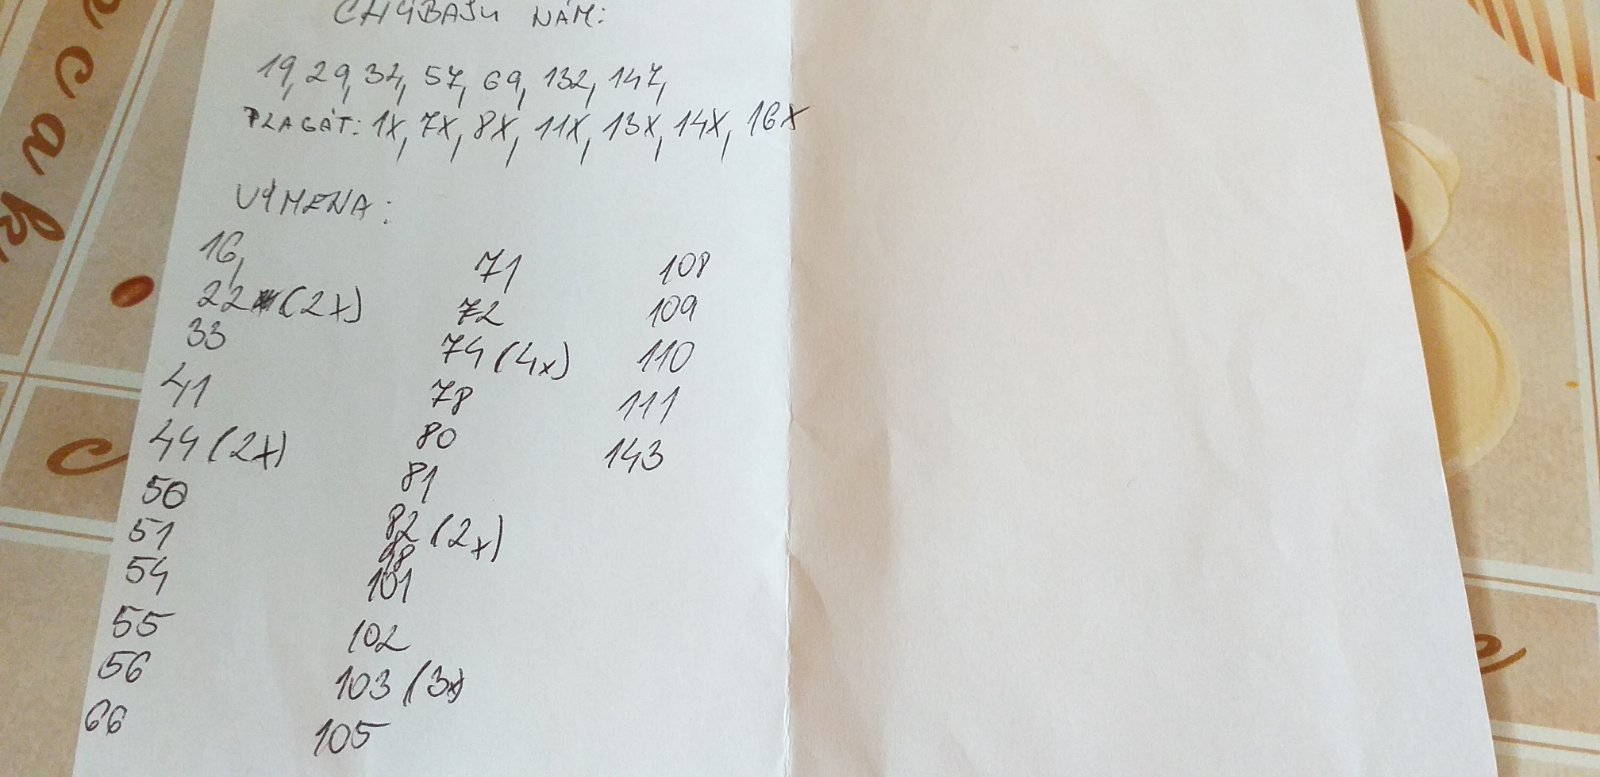 CHÝBAJÚ NÁM:
19, 29, 32, 57, 69, 132, 147,
PLAGÁT: 1X, 7X, 8X, 11X, 13X, 14X, 16X
VÝMENA:
16,
22 (2x)
33
41
44 (2x)
50
51
54
55
56
66
71
72
74 (4x)
78
80
81
82 (2x)
98
101
102
103 (3x)
105
108
109
110
111
143